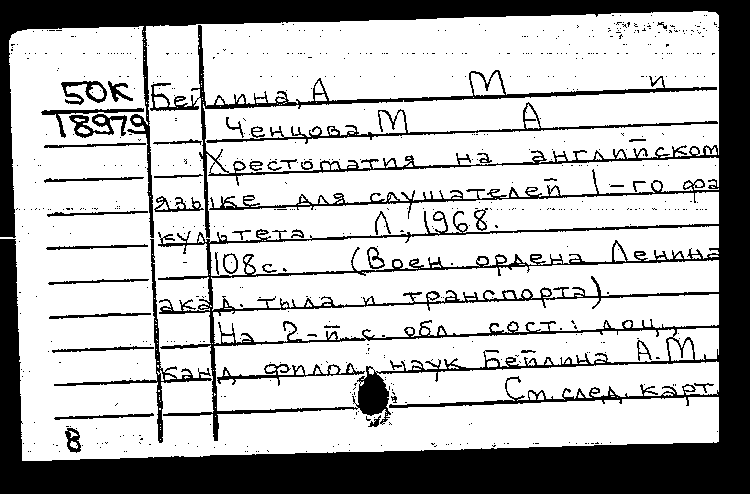 50К Бейлина, А М и
18979 Ченцова, М А
Хрестоматия на английском
языке для слушателей 1-го фа
культета. Л., 1968.
108 с. (Воен. ордена Ленина
акад. тыла и транспорта).
На 2-й с. обл. сост.: доц.,
канд. филол. наук Бейлина А.М.,
См. след. карт.
8